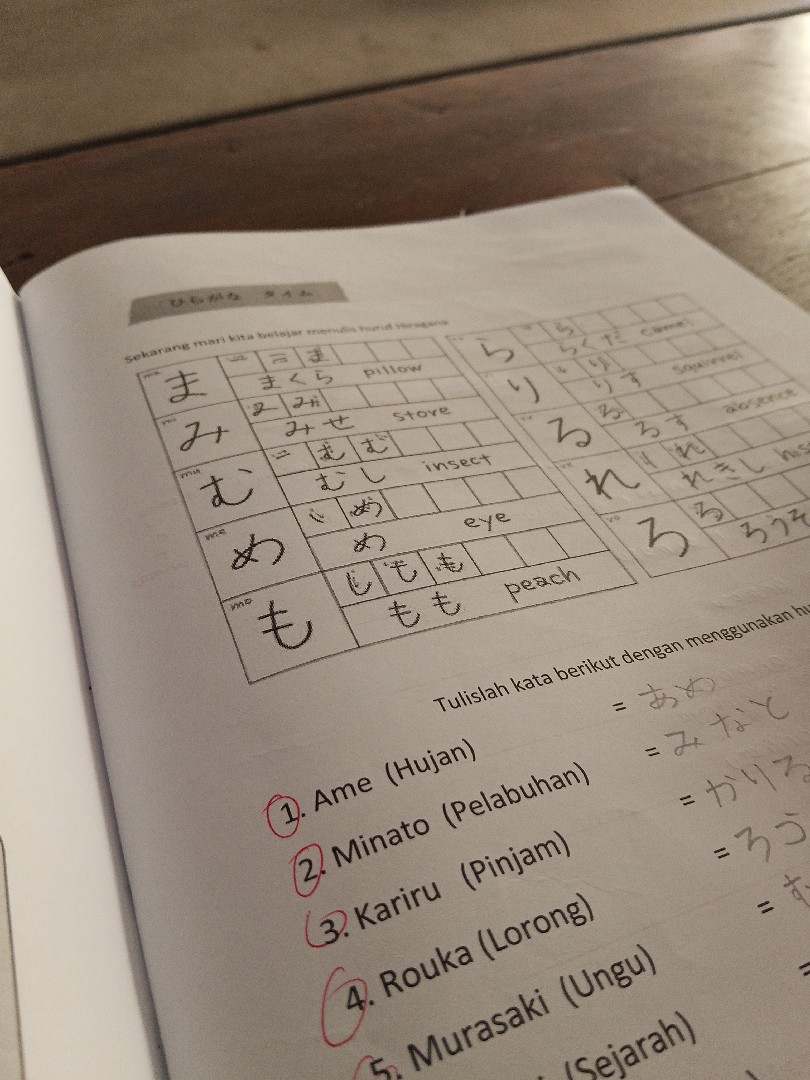 ひらがな タイム
Sekarang mari kita belajar menulis huruf Hiragana
ma ま
まくら pillow
み
みせ store
mu む
むし insect
me め
め eye
mo も
もも peach
ら
らくだ camel
り
りす squirrel
る
るす absence
れ
れきし his
ろ
ろうそ
Tulislah kata berikut dengan menggunakan hu
1. Ame (Hujan) = あめ
2. Minato (Pelabuhan) = みなと
3. Kariru (Pinjam) = かりる
4. Rouka (Lorong) = ろう
5. Murasaki (Ungu) = む
(Sejarah) =